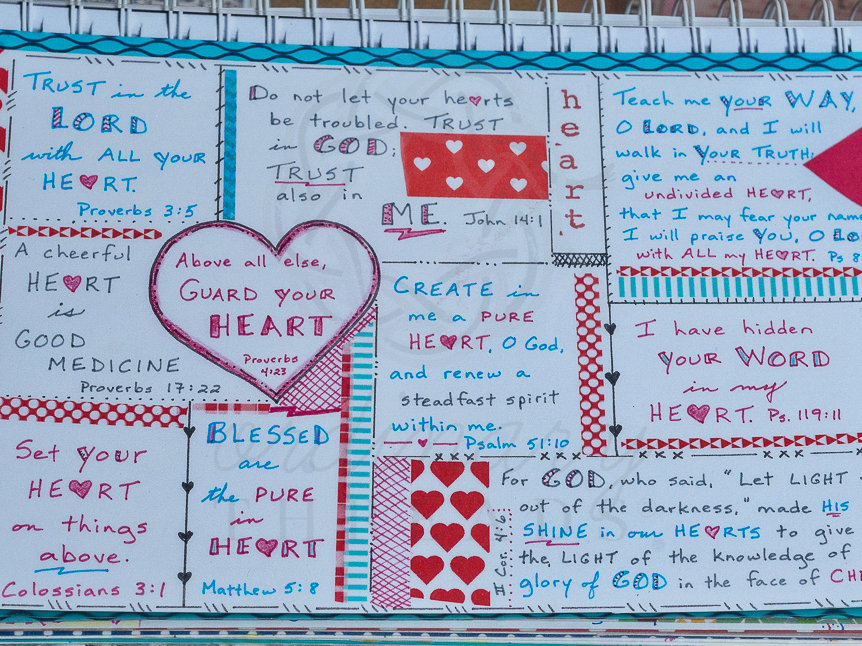 TRUST in the
LORD
with ALL YOUR
HEART.
Proverbs 3:5
Do not let your hearts
be troubled. TRUST
in GOD;
TRUST
also in
ME. John 14:1
heart.
Teach me your WAY,
O LORD, and I will
walk in YOUR TRUTH;
give me an
undivided HEART,
that I may fear your name
I will praise YOU, O LO
with ALL my HEART. Ps 8
A cheerful
HEART
is
GOOD
MEDICINE
Proverbs 17:22
Above all else,
GUARD YOUR
HEART
Proverbs
4:23
CREATE in
me a PURE
HEART, O God,
and renew a
steadfast spirit
within me.
Psalm 51:10
I have hidden
YOUR WORD
in my
HEART. Ps. 119:11
Set your
HEART
on things
above.
Colossians 3:1
BLESSED
are
the PURE
in
HEART
Matthew 5:8
II Cor. 4:6
For GOD, who said, "Let LIGHT
out of the darkness," made HIS
SHINE in our HEARTS to give
the LIGHT of the knowledge of
glory of GOD in the face of CH